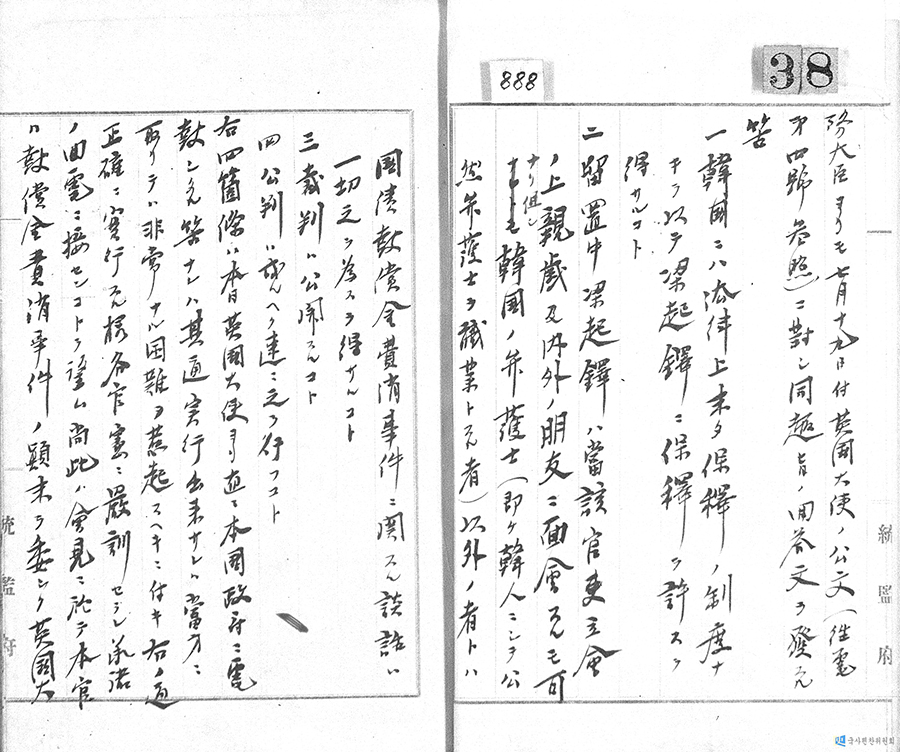 38
888
務大臣ヨリモ七月十九日付英国大使ノ公文(往電
第四號参照)ニ対シ同趣旨ノ回答文ヲ発シ
答
一 韓国ニハ法律上未タ保釋ノ制度ナ
キヲ以テ梁起鐸ニ保釋ヲ許スヲ
得サルコト
二 留置中梁起鐸ハ當該官吏立會
ノ上親戚及内外ノ朋友ニ面會スルモ可
ナリ但シ
韓国ノ弁護士(即ケ韓人ニシテ公
然弁護士ヲ職業トスル者)以外ノ者トハ
統監府
国債報償金費消事件ニ関スル談話ハ
一切之ヲ為スヲ得サルコト
三 裁判ハ公開スルコト
四 公判ハ成ルヘク速ニ之ヲ行フコト
右四箇條ハ本日英国大使ヨリ直ニ本国政府ニ電
報シタル筈ナレハ其通実行出来サレハ當方ニ
取リテハ非常ナル困難ヲ惹起スヘキニ付キ右ノ通
正確ニ実行スル様各官憲ニ嚴訓セラレ承諾
ノ回電ニ接センコトヲ望ム尚此ハ會見ニ於テ本官
ハ報償金費消事件ノ顛末ヲ委シク英国大
統監府
국사편찬위원회